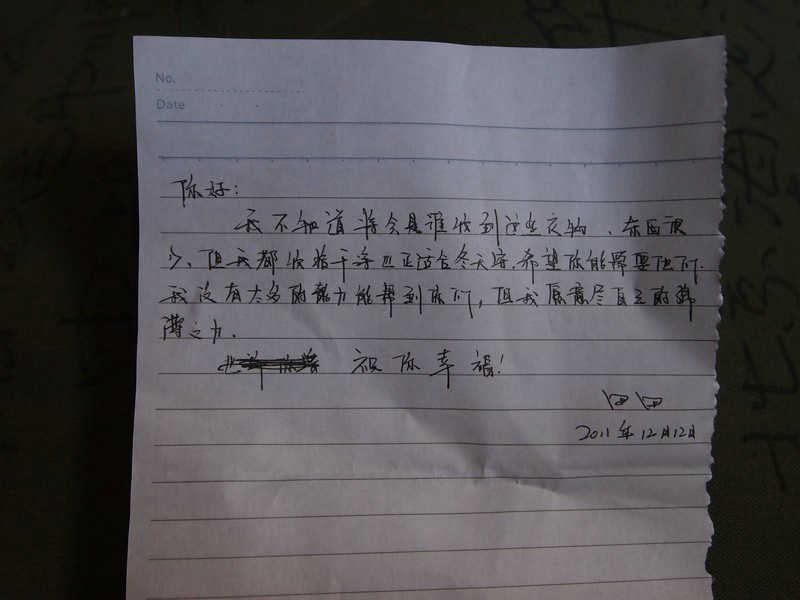 No.
Date
你好:
我不知道将会是谁收到这些衣物、东西很
少、但我都收拾干净也正适合冬天穿.希望你能需要它们.
我没有太多的能力能帮到你们,但我愿意尽自己的绵
薄之力.
祝你幸福!
2011年12月12日